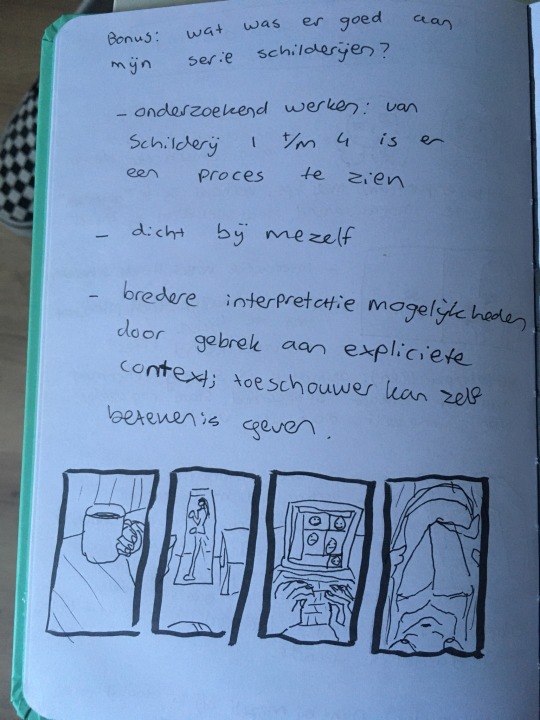 Bonus: wat was er goed aan
mijn serie schilderijen?
- onderzoekend werken: van
Schilderij 1 t/m 4 is er
een proces te zien
- dicht bij mezelf
- bredere interpretatie mogelijkheden
door gebrek aan expliciete
context; toeschouwer kan zelf
betekenis geven.